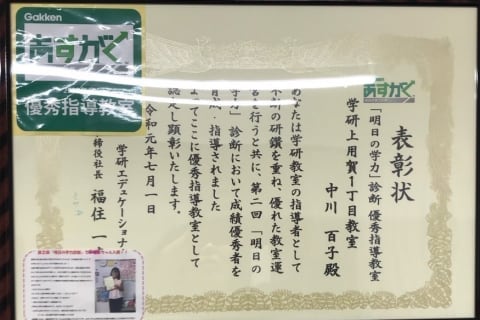 Gakken
あすがく
優秀指導教室
あすがく
表彰状
「明日の学力」診断 優秀指導教室
学研上用賀1丁目教室
中川 百子殿
あなたは学研教室の指導者として
不断の研鑽を重ね、優れた教室運
営を行うと共に、第二回「明日の
学力」診断において成績優秀者を
育成・指導されました
よってここに優秀指導教室として
認定し顕彰いたします。
令和元年七月一日
学研エデュケーショナ
締役社長 福住 一